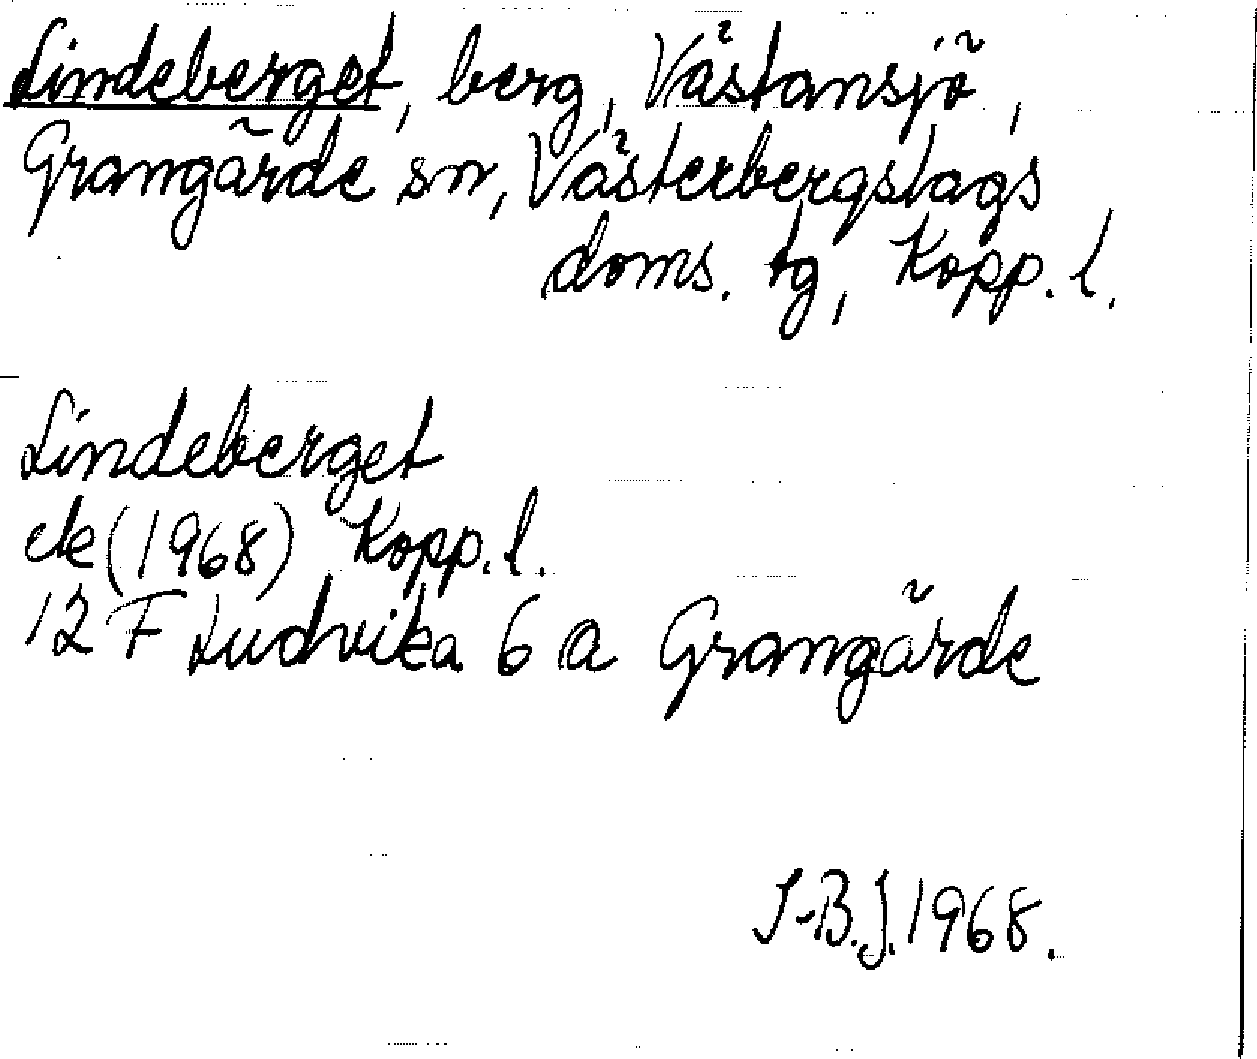 Lindeberget, berg, Västansjö,
Grangärde sn, Västerbergslags
doms. tg, Kopp. l.
Lindeberget
ek (1968) Kopp. l.
12 F Ludvika 6 a Grangärde
I-B.J. 1968.